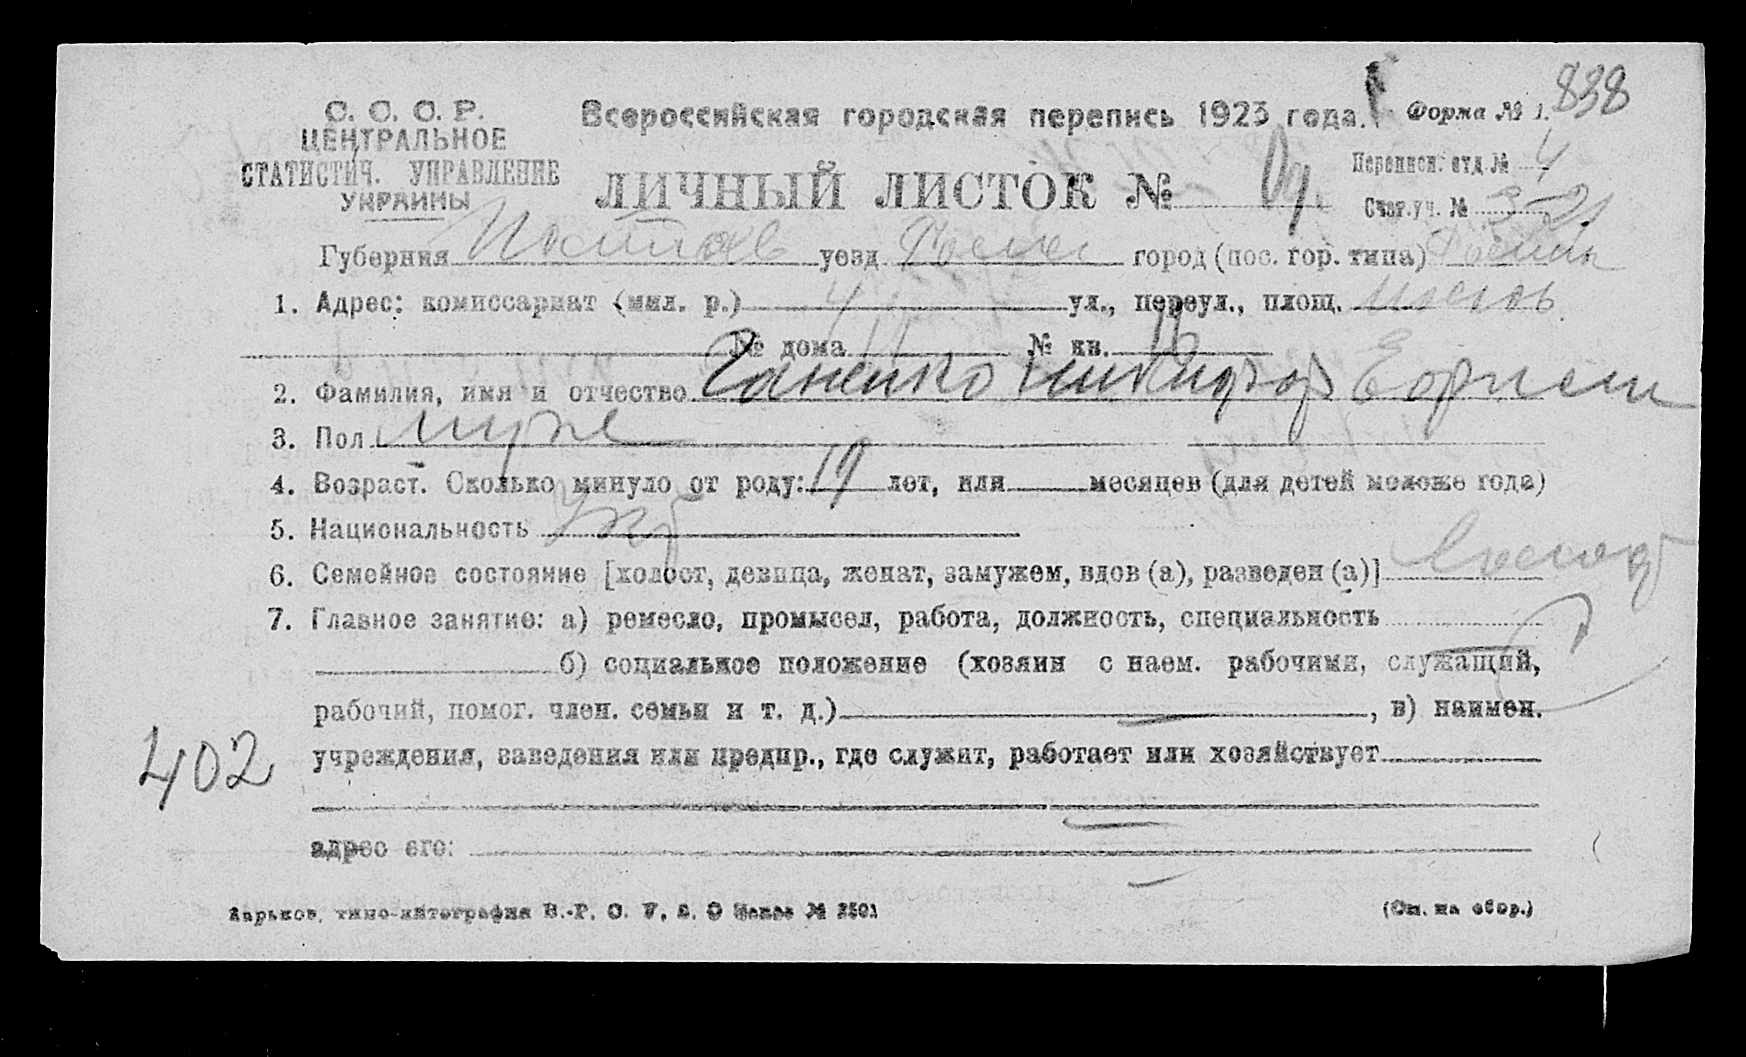 838
С. С. С. Р.
ЦЕНТРАЛЬНОЕ
СТАТИСТИЧ. УПРАВЛЕНИЕ
УКРАИНЫ
Всероссийская городская перепись 1923 года.
Форма № 1.
ЛИЧНЫЙ ЛИСТОК №
Переписн. отд. № 4
Счет. уч. № 3-2
Губерния Полтав уезд Ромен город (пос. гор. типа) Ромны
1. Адрес: комиссариат (мил. р.) 4 ул., переул., площ.
№ дома 11 № кв.
2. Фамилия, имя и отчество Никифор
3. Пол муж
4. Возраст. Сколько минуло от роду: 19 лет, или месяцев (для детей моложе года)
5. Национальность Укр
6. Семейное состояние [холост, девица, женат, замужем, вдов (а), разведен (а)] Холост
7. Главное занятие: а) ремесло, промысел, работа, должность, специальность
б) социальное положение (хозяин с наем. рабочими, служащий,
рабочий, помог. член. семьи и т. д.) , в) наимен.
402
учреждения, заведения или предпр., где служит, работает или хозяйствует
адрес его:
Харьков, типо-литография Заказ № 3501
(См. на обор.)